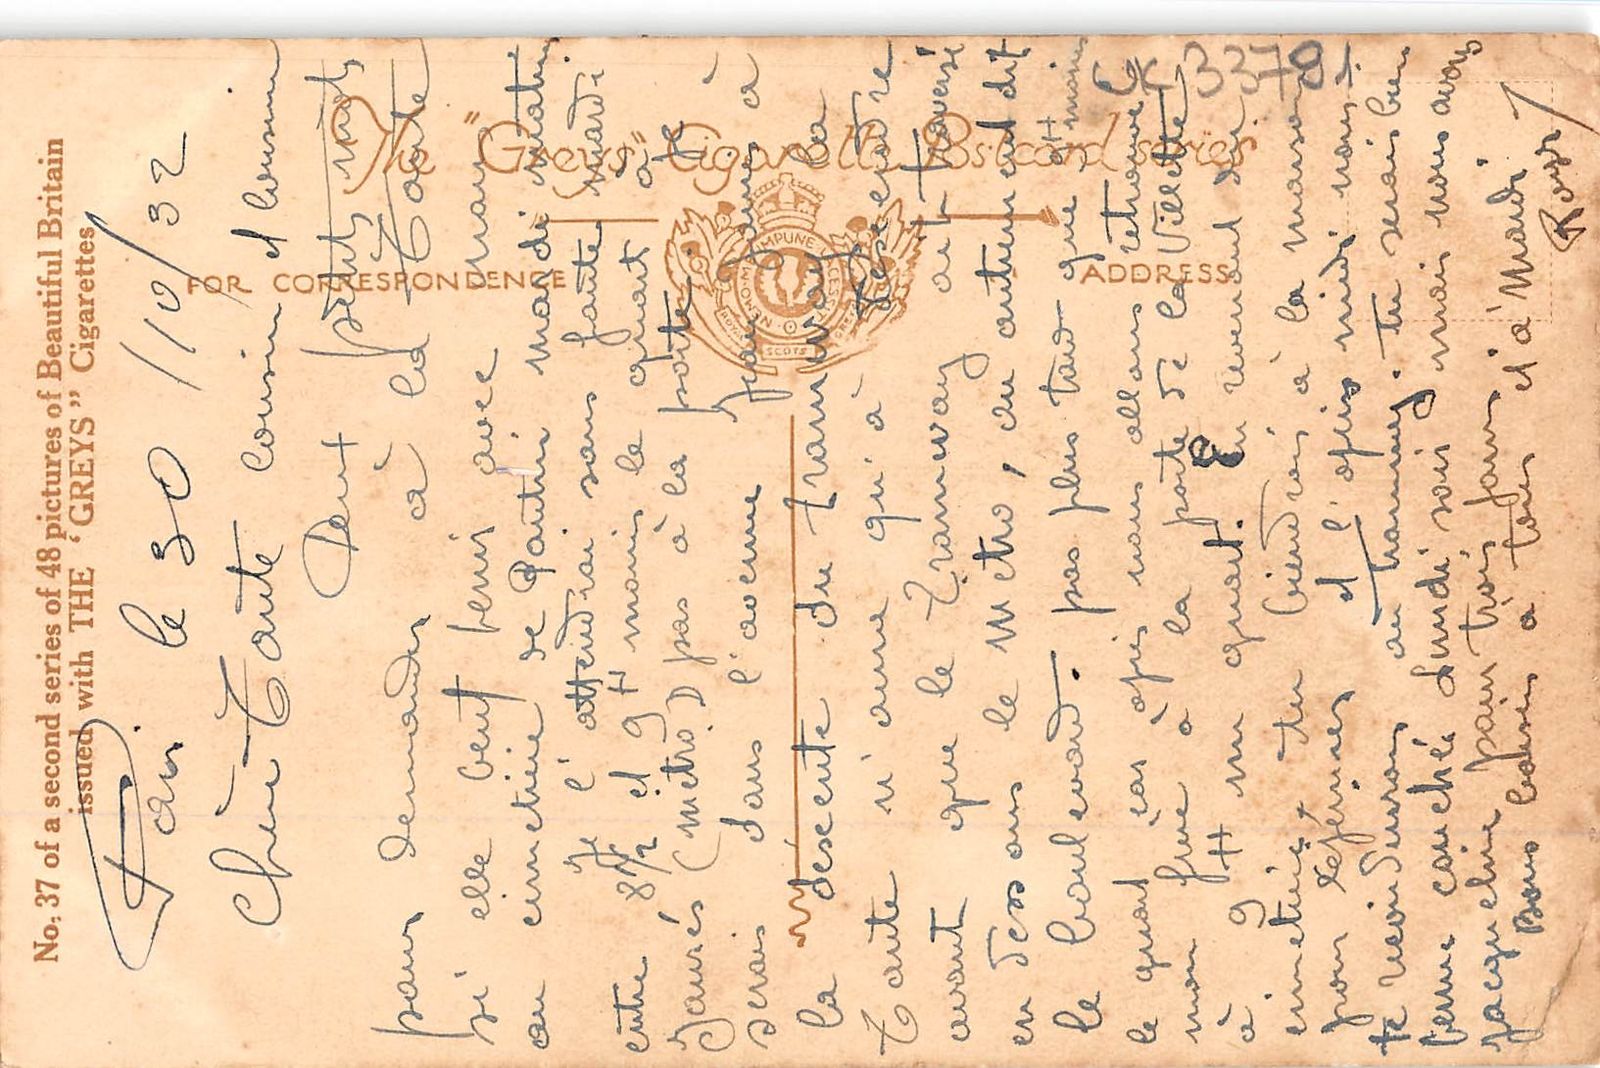 No. 37 of a second series of 48 pictures of Beautiful Britain
issued with THE "GREYS" Cigarettes
The "Greys" Cigarette Postcard series
FOR CORRESPONDENCE
ADDRESS
NEMO ME IMPUNE LACESSIT
SCOTS
CK 3378
Paris le 30/10/32
Chère Tante cousin et cousine
Deux petits mots
pour demander à la Tante
si elle veut venir avec nous
au cimetière de Pantin mardi matin
je l'attendrai sans faute mardi
entre 8h 1/2 et 9h moins le quart à
Jaurès (métro) pas à la porte je
serais dans l'avenue Jean Jaures à
la descente du tramway la
Tante n'aura qu'à descendre
avant que le Tramway ait traversé
en dessous le métro, ou autrement dit
le boulevard. pas plus tard que 9H moins
le quart car après nous allons retrouver
mon frère à la porte de la Villette
à 9H un quart. en revenant du
cimetière tu viendras à la maison
pour déjeuner et l'après midi nous
te reconduirons au tramway. tu serais bien
venue coucher Lundi soir mais nous avons
Jacqueline pour trois jours et à Mardi.
Bons baisers à tous
Roger